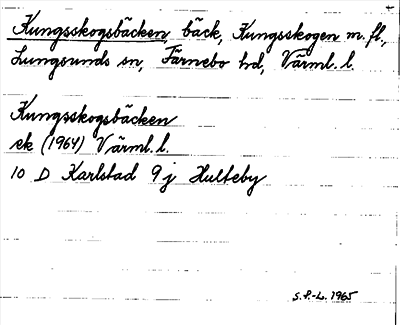 Kungsskogsbäcken, bäck, Kungsskogen m. fl.,
Lungsunds sn, Färnebo hd, Värml. l.
Kungsskogsbäcken
ek (1964) Värml. l.
10 D Karlstad 9 j Hulteby
S.P.-L. 1965